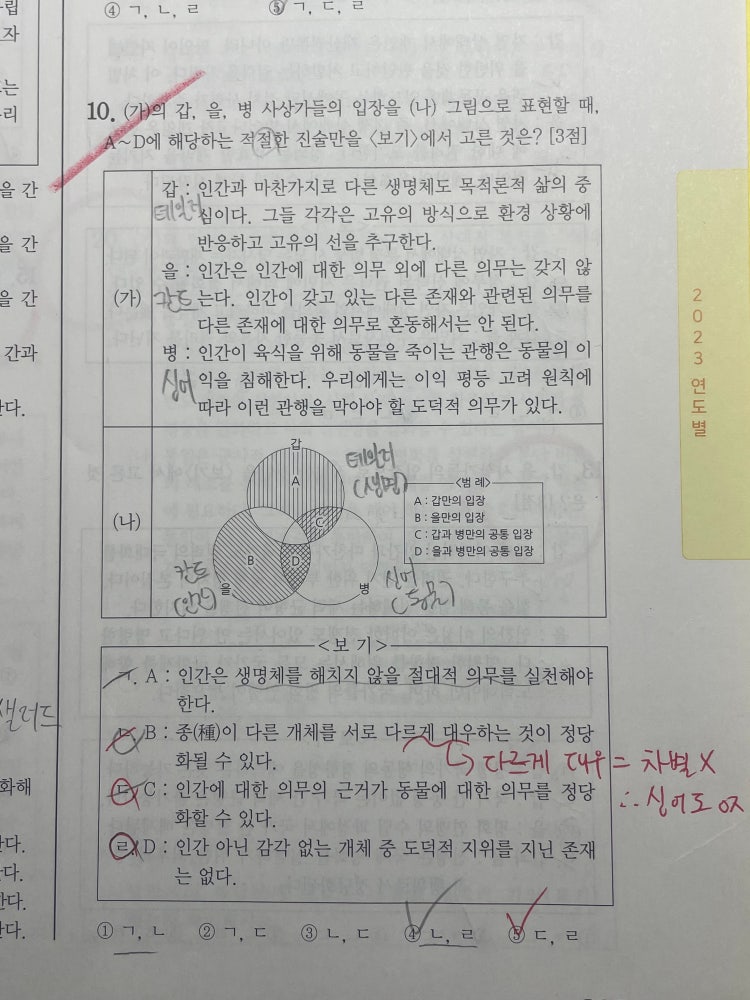 ④ ㄱ, ㄴ, ㄹ ⑤ ㄱ, ㄷ, ㄹ
10. (가)의 갑, 을, 병 사상가들의 입장을 (나) 그림으로 표현할 때,
A～D에 해당하는 적절한 진술만을 〈보기〉에서 고른 것은? [3점]
(가)
갑 : 인간과 마찬가지로 다른 생명체도 목적론적 삶의 중
테일러 심이다. 그들 각각은 고유의 방식으로 환경 상황에
반응하고 고유의 선을 추구한다.
을 : 인간은 인간에 대한 의무 외에 다른 의무는 갖지 않
칸트 는다. 인간이 갖고 있는 다른 존재와 관련된 의무를
다른 존재에 대한 의무로 혼동해서는 안 된다.
병 : 인간이 육식을 위해 동물을 죽이는 관행은 동물의 이
싱어 익을 침해한다. 우리에게는 이익 평등 고려 원칙에
따라 이런 관행을 막아야 할 도덕적 의무가 있다.
(나)
갑
테일러
(생명)
A
C
B
D
칸트
을
(인간)
병
싱어
(동물)
<범 례>
A : 갑만의 입장
B : 을만의 입장
C : 갑과 병만의 공통 입장
D : 을과 병만의 공통 입장
<보 기>
ㄱ. A : 인간은 생명체를 해치지 않을 절대적 의무를 실천해야
한다.
ㄴ. B : 종(種)이 다른 개체를 서로 다르게 대우하는 것이 정당
화될 수 있다.
다르게 대우 = 차별 X
ㄷ. C : 인간에 대한 의무의 근거가 동물에 대한 의무를 정당
화할 수 있다.
∴ 싱어도 ok
ㄹ. D : 인간 아닌 감각 없는 개체 중 도덕적 지위를 지닌 존재
는 없다.
① ㄱ, ㄴ ② ㄱ, ㄷ ③ ㄴ, ㄷ ④ ㄴ, ㄹ ⑤ ㄷ, ㄹ
2023 연도별
립
자
는
리
을 간
을 간
을 간
간과
다.
샐러드
화해
다.
다.
한다.
한다.